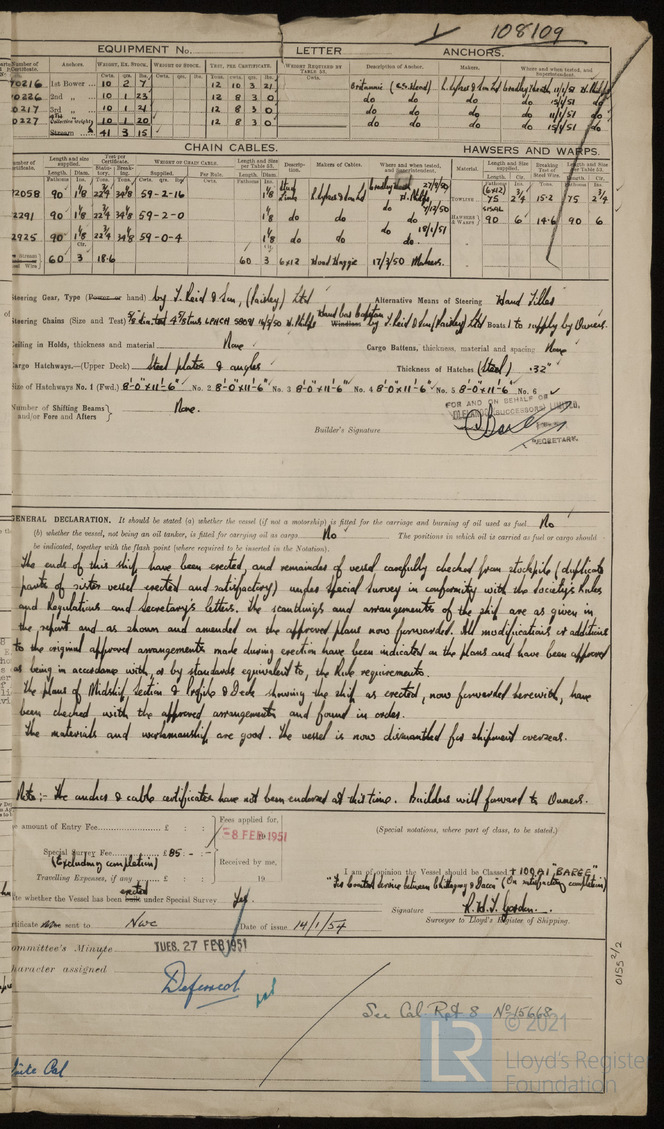 108109
EQUIPMENT No. LETTER ANCHORS.
Number of Certificate. Anchors. WEIGHT, EX. STOCK. WEIGHT OF STOCK. TEST, PER CERTIFICATE. WEIGHT REQUIRED BY TABLE 53. Description of Anchor. Makers. Where and when tested, and Superintendent.
70216 1st Bower 10 2 7 12 10 3 21
70226 2nd „ 10 1 23 12 8 3 0 do do do 15/1/51 do
70217 3rd „ 10 1 21 12 8 3 0 do do do 11/1/51 do
70227 10 1 20 12 8 3 0 do do do 15/1/51 do
Stream 41 3 15
CHAIN CABLES. HAWSERS AND WARPS.
Length and size supplied. Test per Certificate. WEIGHT OF CHAIN CABLE. Length and size per Table 53. Description. Makers of Cables. Where and when tested, and Superintendent. Material. Length and Size supplied. Breaking Test of Steel Wire. Length and Size per Table 53.
Length. Diam. Statutory. Breaking. Supplied. Per Rule. Length. Diam.
2058 90 1 1/8 22 3/4 34 1/8 59-2-16 1 1/8 Stud Link
2291 90 1 1/8 22 3/4 34 1/8 59-2-0 1 1/8 do do do
2925 90 1 1/8 22 3/4 34 1/8 59-0-4 1 1/8 do do do 18/1/51
60 3 18.6 60 3 6x12 Hood Haggie 17/3/50 Makers.
TOWLINE (6x12) 75 2 3/4 15.2 75 2 3/4
HAWSERS & WARPS SISAL 90 6 14.6 90 6
Steering Gear, Type (Power or hand) by J. Reid & Son, (Paisley) Ltd Alternative Means of Steering Hand Tiller
Steering Chains (Size and Test) by J. Reid & Son (Paisley) Ltd Boats 1 to supply by Owners.
Ceiling in Holds, thickness and material None Cargo Battens, thickness, material and spacing None
Cargo Hatchways.—(Upper Deck) Steel plates & angles Thickness of Hatches (Steel) .32"
Size of Hatchways No. 1 (Fwd.) 8'-0"x11'-6" No. 2 8'-0"x11'-6" No. 3 8'-0"x11'-6" No. 4 8'-0"x11'-6" No. 5 8'-0"x11'-6" No. 6
Number of Shifting Beams and/or Fore and Afters } None.
FOR AND ON BEHALF OF
(SUCCESSORS) LIMITED.
Builder's Signature
SECRETARY.
GENERAL DECLARATION. It should be stated (a) whether the vessel (if not a motorship) is fitted for the carriage and burning of oil used as fuel No
(b) whether the vessel, not being an oil tanker, is fitted for carrying oil as cargo No The positions in which oil is carried as fuel or cargo should
be indicated, together with the flash point (where required to be inserted in the Notation).
The ends of this ship have been erected, and remainder of vessel carefully checked from stockpile (duplicate
parts of sister vessel erected and satisfactory) under Special Survey in conformity with the Society's Rules
and Regulations and Secretary's letters. The scantlings and arrangements of the ship are as given in
the report and as shown and amended on the approved plans now forwarded. All modifications or additions
to the original approved arrangements made during erection have been indicated on the plans and have been approved
as being in accordance with, or by standards equivalent to, the Rule requirements.
The plans of Midship Section & Profile & Deck showing the ship as erected, now forwarded herewith, have
been checked, with the approved arrangements and found in order.
The materials and workmanship are good. The vessel is now dismantled for shipment overseas.
Note:- The anchor & cable certificates have not been endorsed at this time. Builders will forward to Owners.
amount of Entry Fee £ : : Fees applied for,
-8 FEB 1951
Special Survey Fee £85 : - : -
(Excluding completion)
Received by me,
Travelling Expenses, if any £ : : 19
(Special notations, where part of class, to be stated.)
I am of opinion the Vessel should be Classed +100A1 "BARGE"
"For limited service between Chittagong & Dacca" (On satisfactory completion)
State whether the Vessel has been erected built under Special Survey Yes
Signature R. W. J. Gordon.
Surveyor to Lloyd's Register of Shipping.
Certificate sent to Nwc Date of issue 14/1/54
Committee's Minute TUES. 27 FEB 1951
Character assigned Deferred
See Cal Rpt 8 No 15668
0155 2/2
Cal
LR
© 2021
Lloyd's Register
Foundation